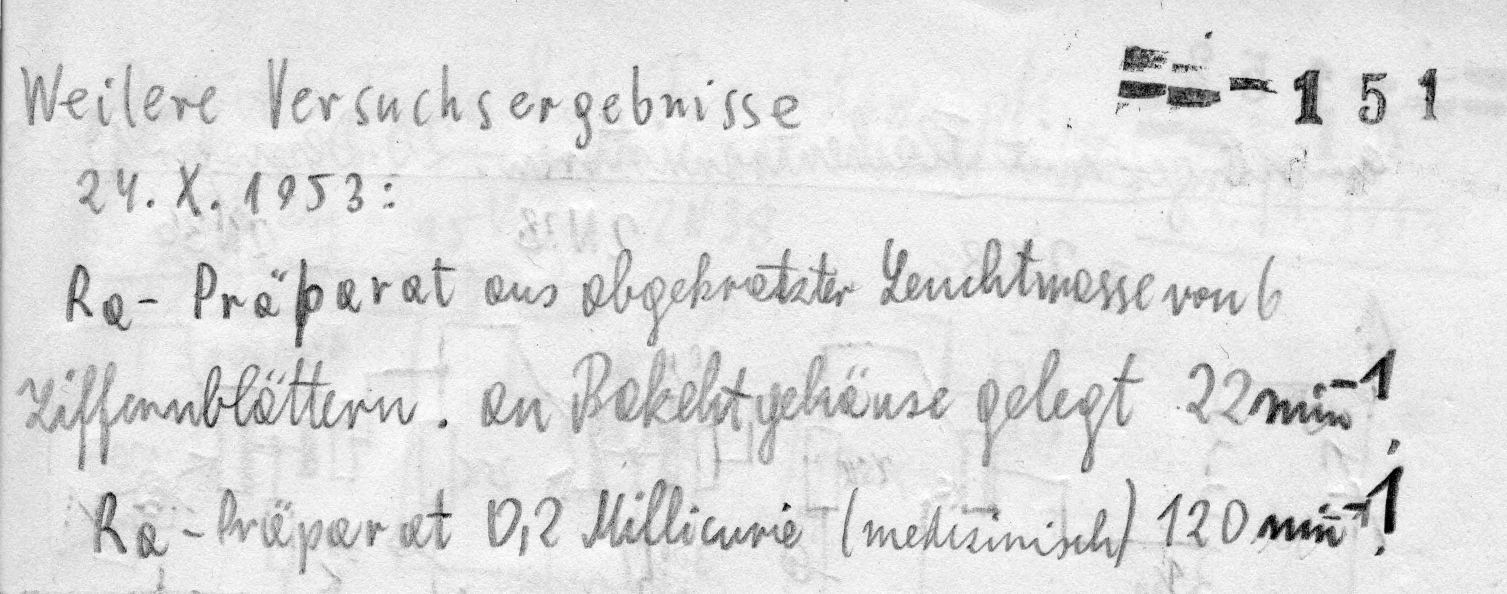 Weitere Versuchsergebnisse
151
24. X. 1953:
Ra- Präparat aus abgekratzter Leuchtmasse von 6
Ziffernblättern. an Bakelitgehäuse gelegt 22 min⁻¹
Ra-Präparat 0,2 Millicurie (medizinisch) 120 min⁻¹!